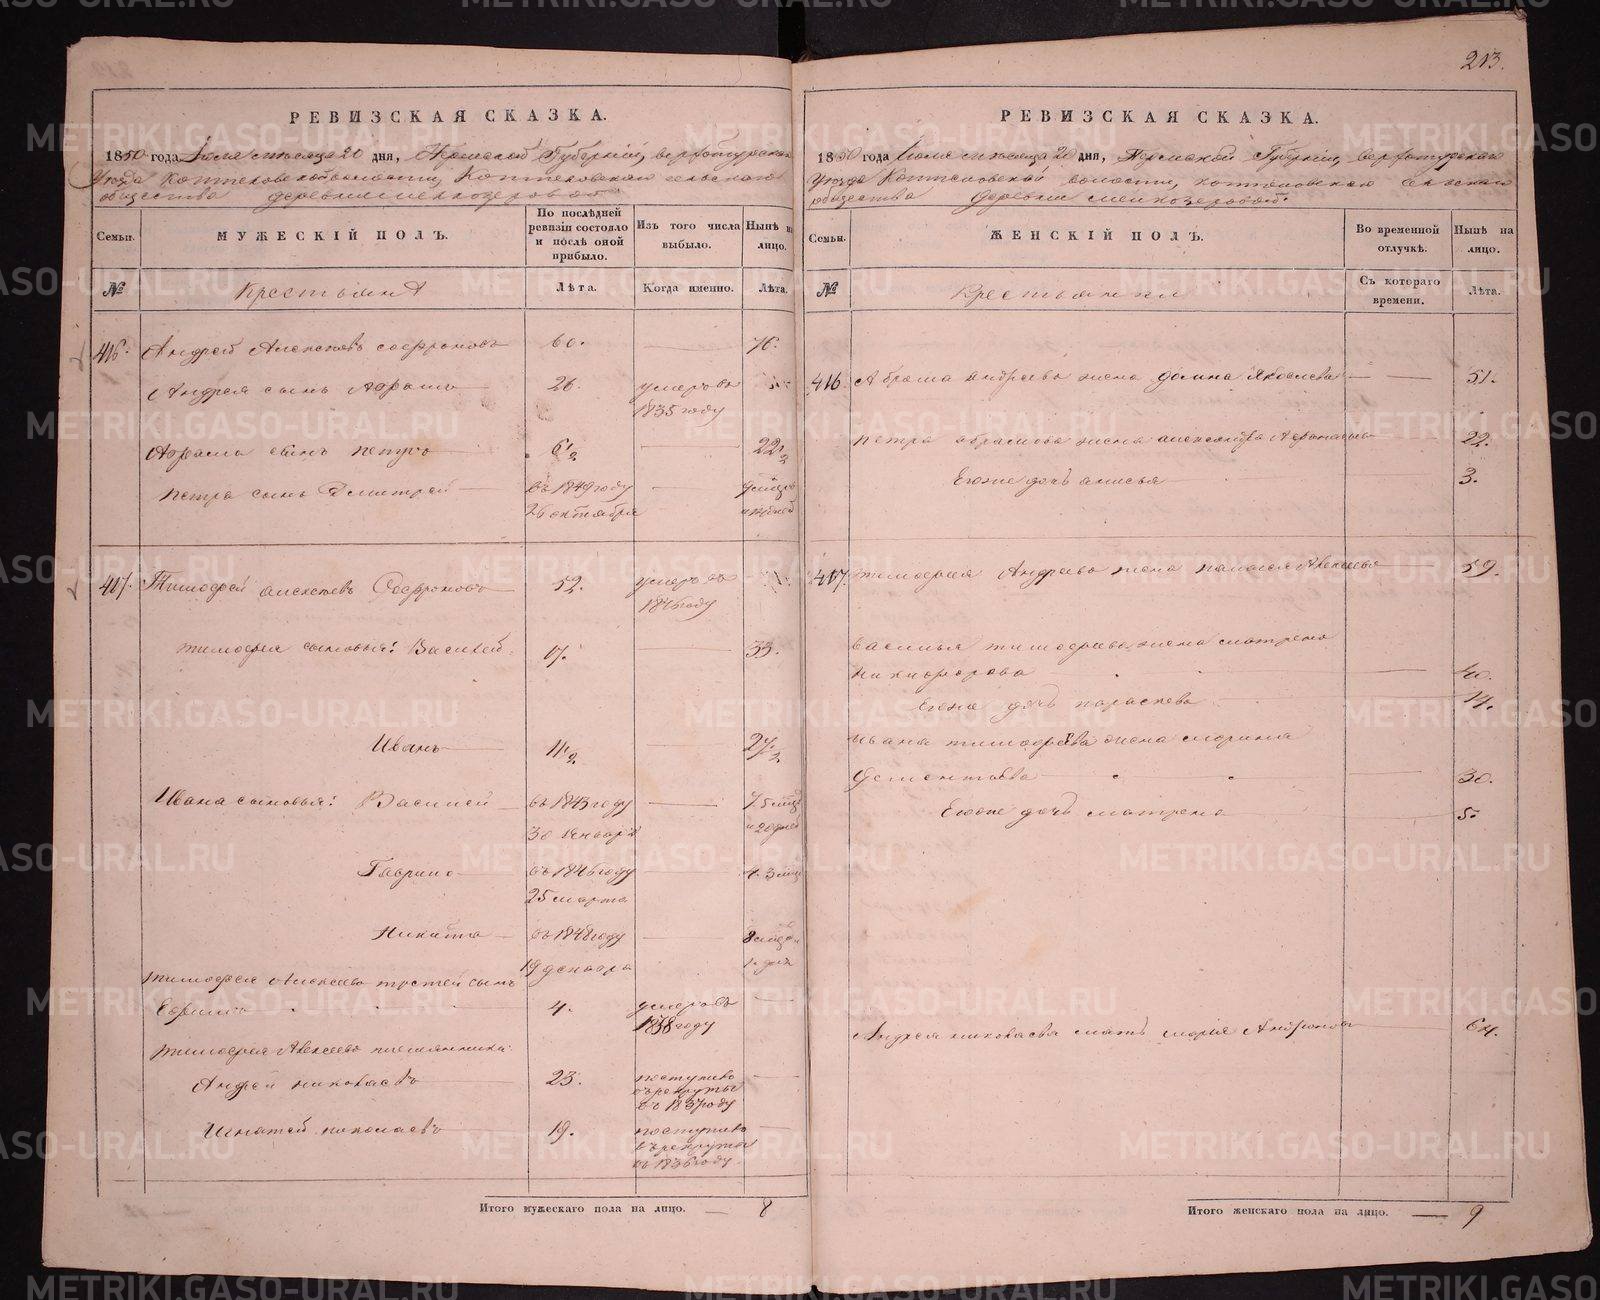 213.
РЕВИЗСКАЯ СКАЗКА.
1850 года Июля месяца 20 дня, Пермской Губернии, Верхотурскаго
Уезда Коптеловской волости, Коптеловскаго сельскаго
общества деревни
Семьи.
МУЖЕСКІЙ ПОЛЪ.
По послѣдней ревизіи состояло и послѣ оной прибыло.
Изъ того числа выбыло.
Нынѣ на лицо.
№
Крестьяне
Лѣта.
Когда именно.
Лѣта.
416. Андрей Алексѣевъ Софроновъ 60. 76.
Андрея сынъ Абрамъ 26. умеръ въ
1835 году
Абрама сынъ Петръ 6 1/2 22 1/2
Петра сынъ Дмитрей въ 1849 году
26 октября
417. Тимофей Алексѣевъ Софроновъ 52. умеръ въ
году
Тимофея сыновья: Василей 17. 33.
Иванъ 11 1/2 27 1/2
Ивана сыновья: Василей въ 1843 году
30 Генваря
Гаврило въ 1846 году 4. 3
25 марта
Никита въ 1848 году
19 декабря
Тимофея Алексѣева третей сынъ
Ефимъ 4. умеръ въ
1838 году
Тимофея Алексѣева племянники:
Андрей Николаевъ 23. поступилъ
въ рекруты
въ 1837 году
Игнатей Николаевъ 19. поступилъ
въ рекруты
въ 1836 году
Итого мужескаго пола на лицо. — 8
РЕВИЗСКАЯ СКАЗКА.
1850 года Июля месяца 20 дня, Пермской Губернии, Верхотурскаго
Уезда Коптеловской волости, Коптеловскаго Сельскаго
общества Деревни
Семьи.
ЖЕНСКІЙ ПОЛЪ.
Во временной отлучкѣ.
Нынѣ на лицо.
№
Крестьянки
Съ котораго времени.
Лѣта.
416. Абрама Андреева жена Домна Яковлева 51.
Петра Абрамова жена Александра 22.
Егоже дочь Анисья 3.
417. Тимофея Андреева жена Палагея Алексеева 59.
Василья Тимофеева жена Матрена
Никифорова 40.
Егоже дочь Параскева 14.
Ивана Тимофеева жена Марина
Дементьева 30.
Егоже дочь Матрена 5.
Андрея Николаева мать Марія 64.
Итого женскаго пола на лицо. — 9
METRIKI.GASO-URAL.RU